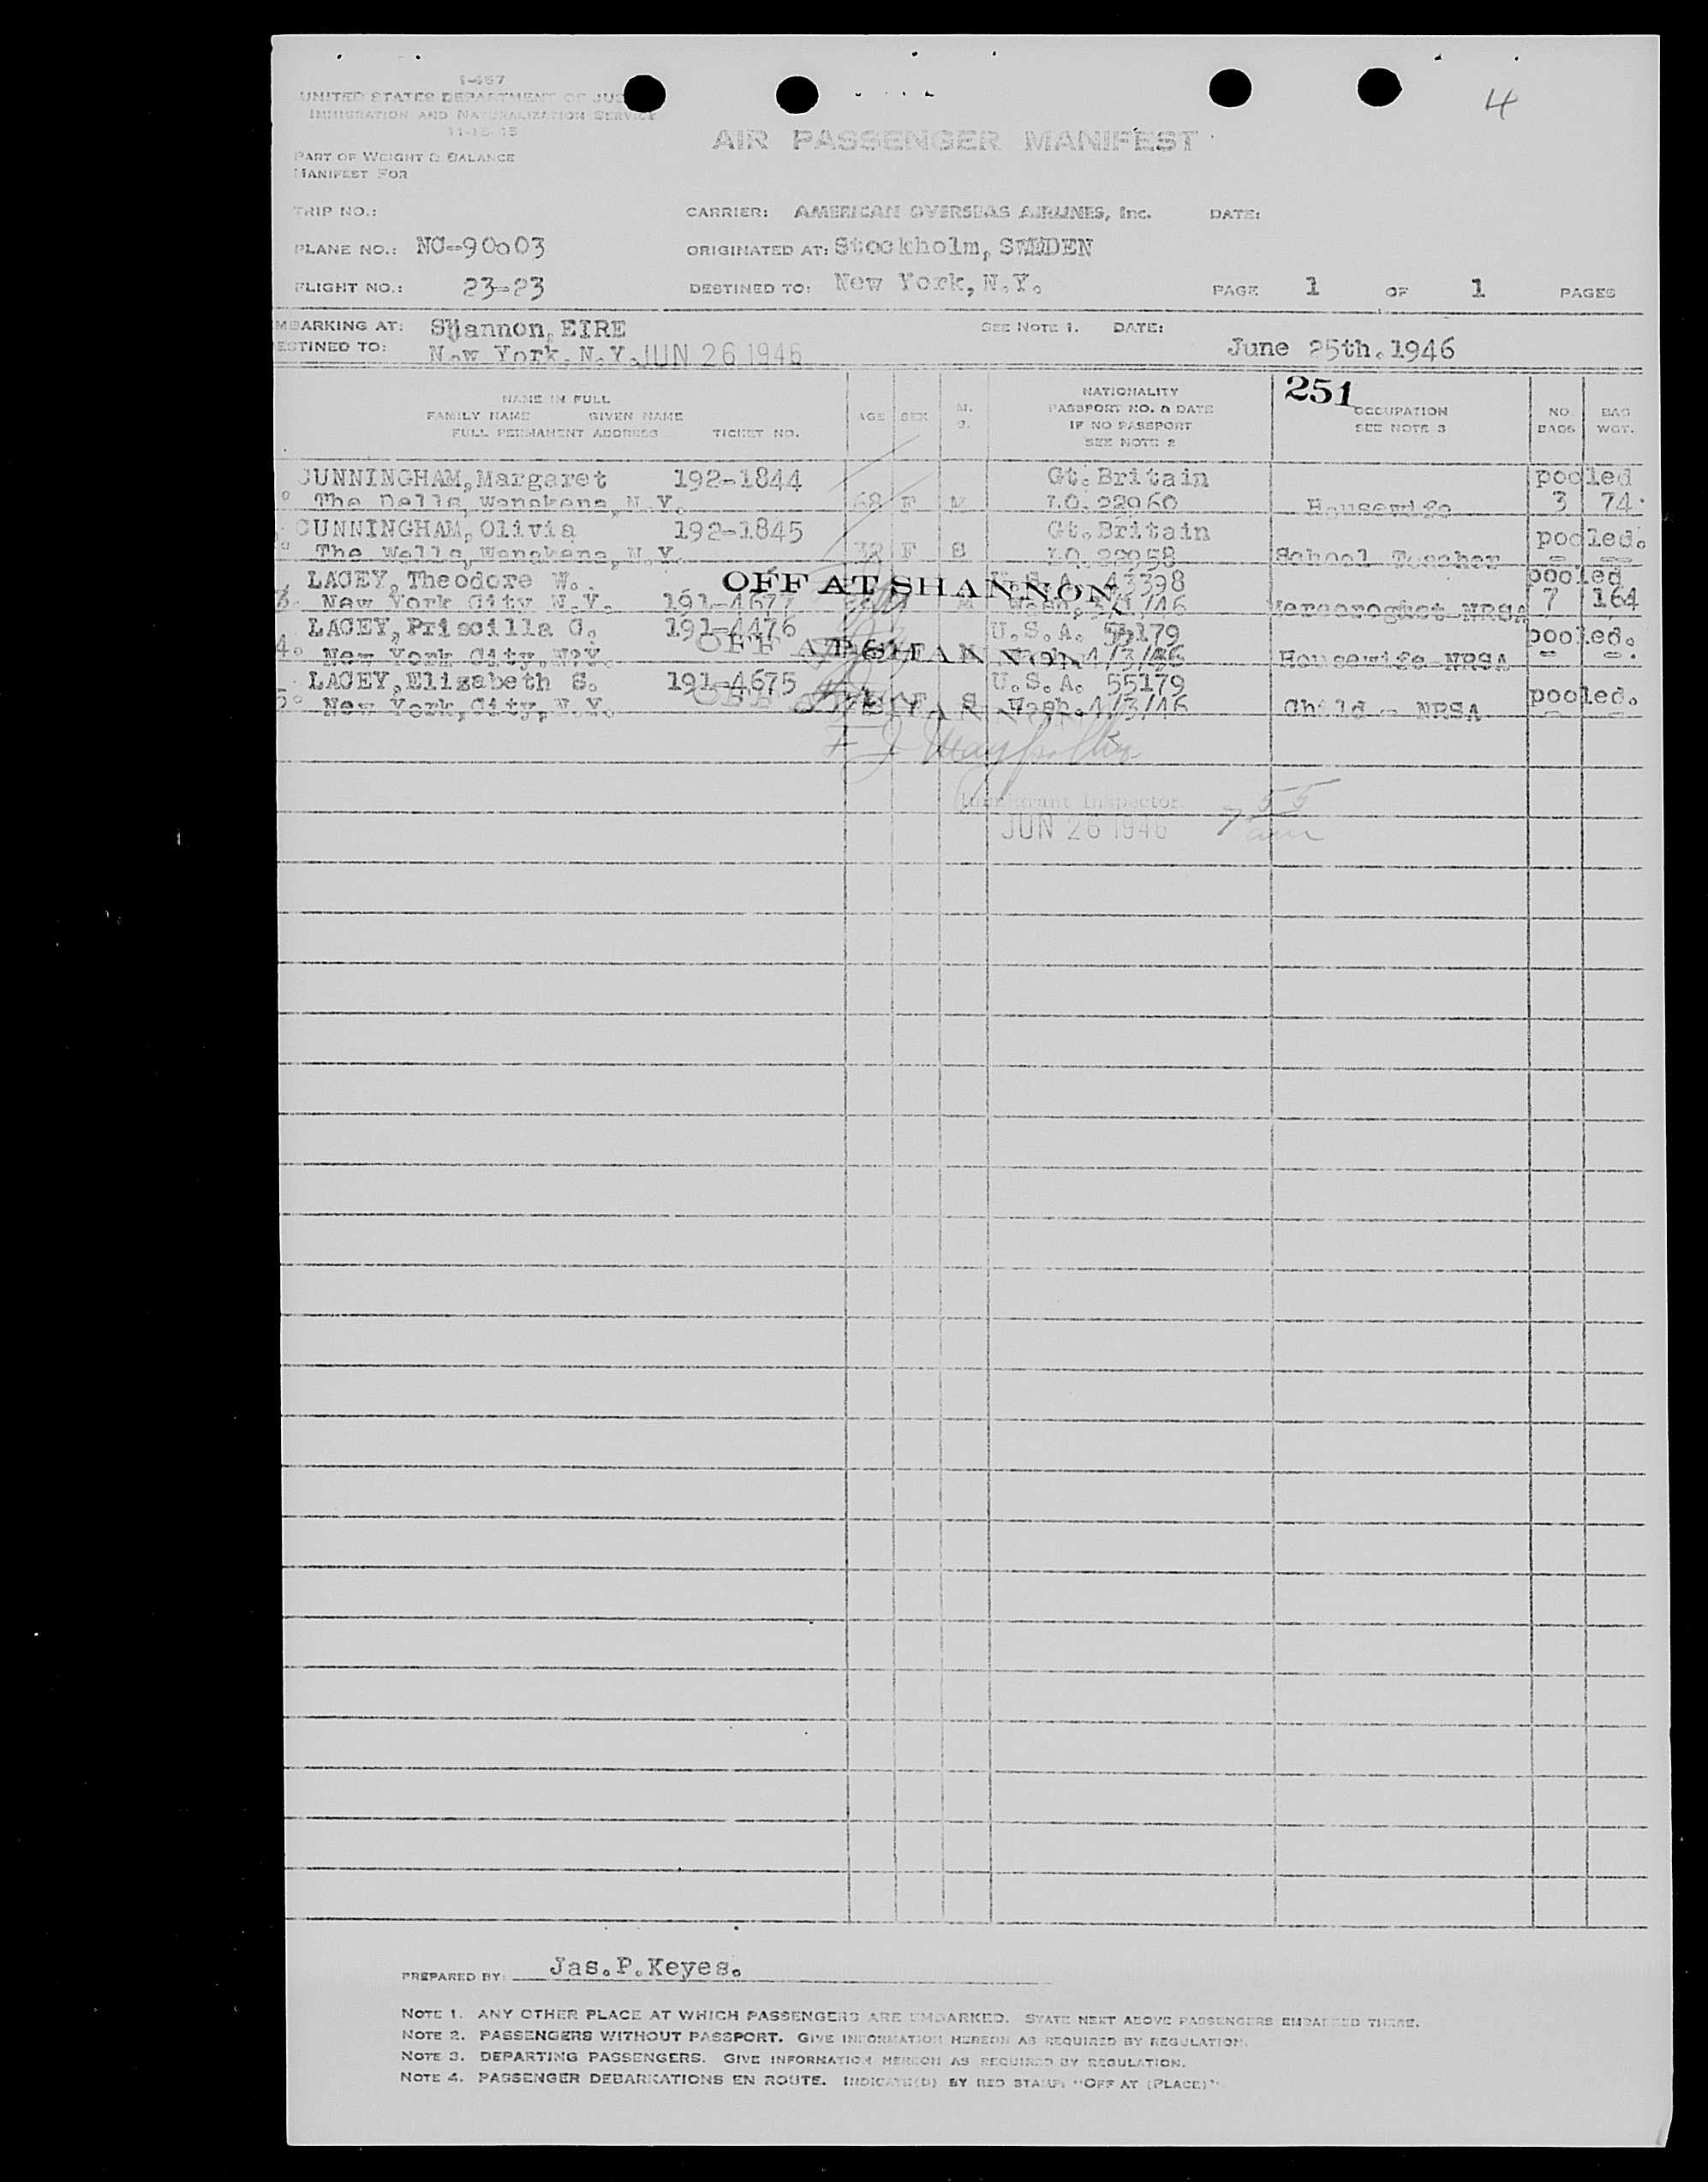 4
I-467
UNITED STATES DEPARTMENT OF JUS
IMMIGRATION AND NATURALIZATION SERVICE
11-15-45
AIR PASSENGER MANIFEST
PART OF WEIGHT & BALANCE
MANIFEST FOR
TRIP NO.: CARRIER: AMERICAN OVERSEAS AIRLINES, Inc. DATE:
PLANE NO.: NC-90003 ORIGINATED AT: Stockholm, SWEDEN
FLIGHT NO.: 23-23 DESTINED TO: New York, N.Y. PAGE 1 OF 1 PAGES
MBARKING AT: Shannon, EIRE SEE NOTE 1. DATE:
ESTINED TO: New York, N.Y. JUN 26 1946 June 25th. 1946
NAME IN FULL
FAMILY NAME GIVEN NAME
FULL PERMANENT ADDRESS TICKET NO.
AGE SEX M. S.
NATIONALITY
PASSPORT NO. & DATE
IF NO PASSPORT
SEE NOTE 2
251
OCCUPATION
SEE NOTE 3
NO BAGS
BAG WGT.
CUNNINGHAM, Margaret 192-1844 Gt. Britain pooled
The Dells, Wanakena, N.Y. 68 F M LO. 22960 Housewife 3 74
CUNNINGHAM, Olivia 192-1845 Gt. Britain pooled.
The Wells, Wanakena, N.Y. 32 F S LO. 22958 School Teacher - -
LACEY, Theodore W. OFF AT SHANNON U.S.A. 43398 pooled
3. New York City N.Y. 191-4677 M Wash. /46 NRSA 7 164
LACEY, Priscilla C. 191-4476 U.S.A. 55179 pooled.
4. New York City, N?Y. OFF AT SHANNON 4/3/46 Housewife NRSA - -
LACEY, Elizabeth S. 191-4675 U.S.A. 55179 pooled.
5. New York, City, N.Y. OFF AT SHANNON F S Wash. 4/3/46 Child - NRSA - -
Immigrant Inspector
JUN 26 1946 7 55 am
PREPARED BY: Jas. P. Keyes.
NOTE 1. ANY OTHER PLACE AT WHICH PASSENGERS ARE EMBARKED. STATE NEXT ABOVE PASSENGERS EMBARKED THERE.
NOTE 2. PASSENGERS WITHOUT PASSPORT. GIVE INFORMATION HEREON AS REQUIRED BY REGULATION.
NOTE 3. DEPARTING PASSENGERS. GIVE INFORMATION HEREON AS REQUIRED BY REGULATION.
NOTE 4. PASSENGER DEBARKATIONS EN ROUTE. INDICATE(D) BY RED STAMP: "OFF AT (PLACE)"